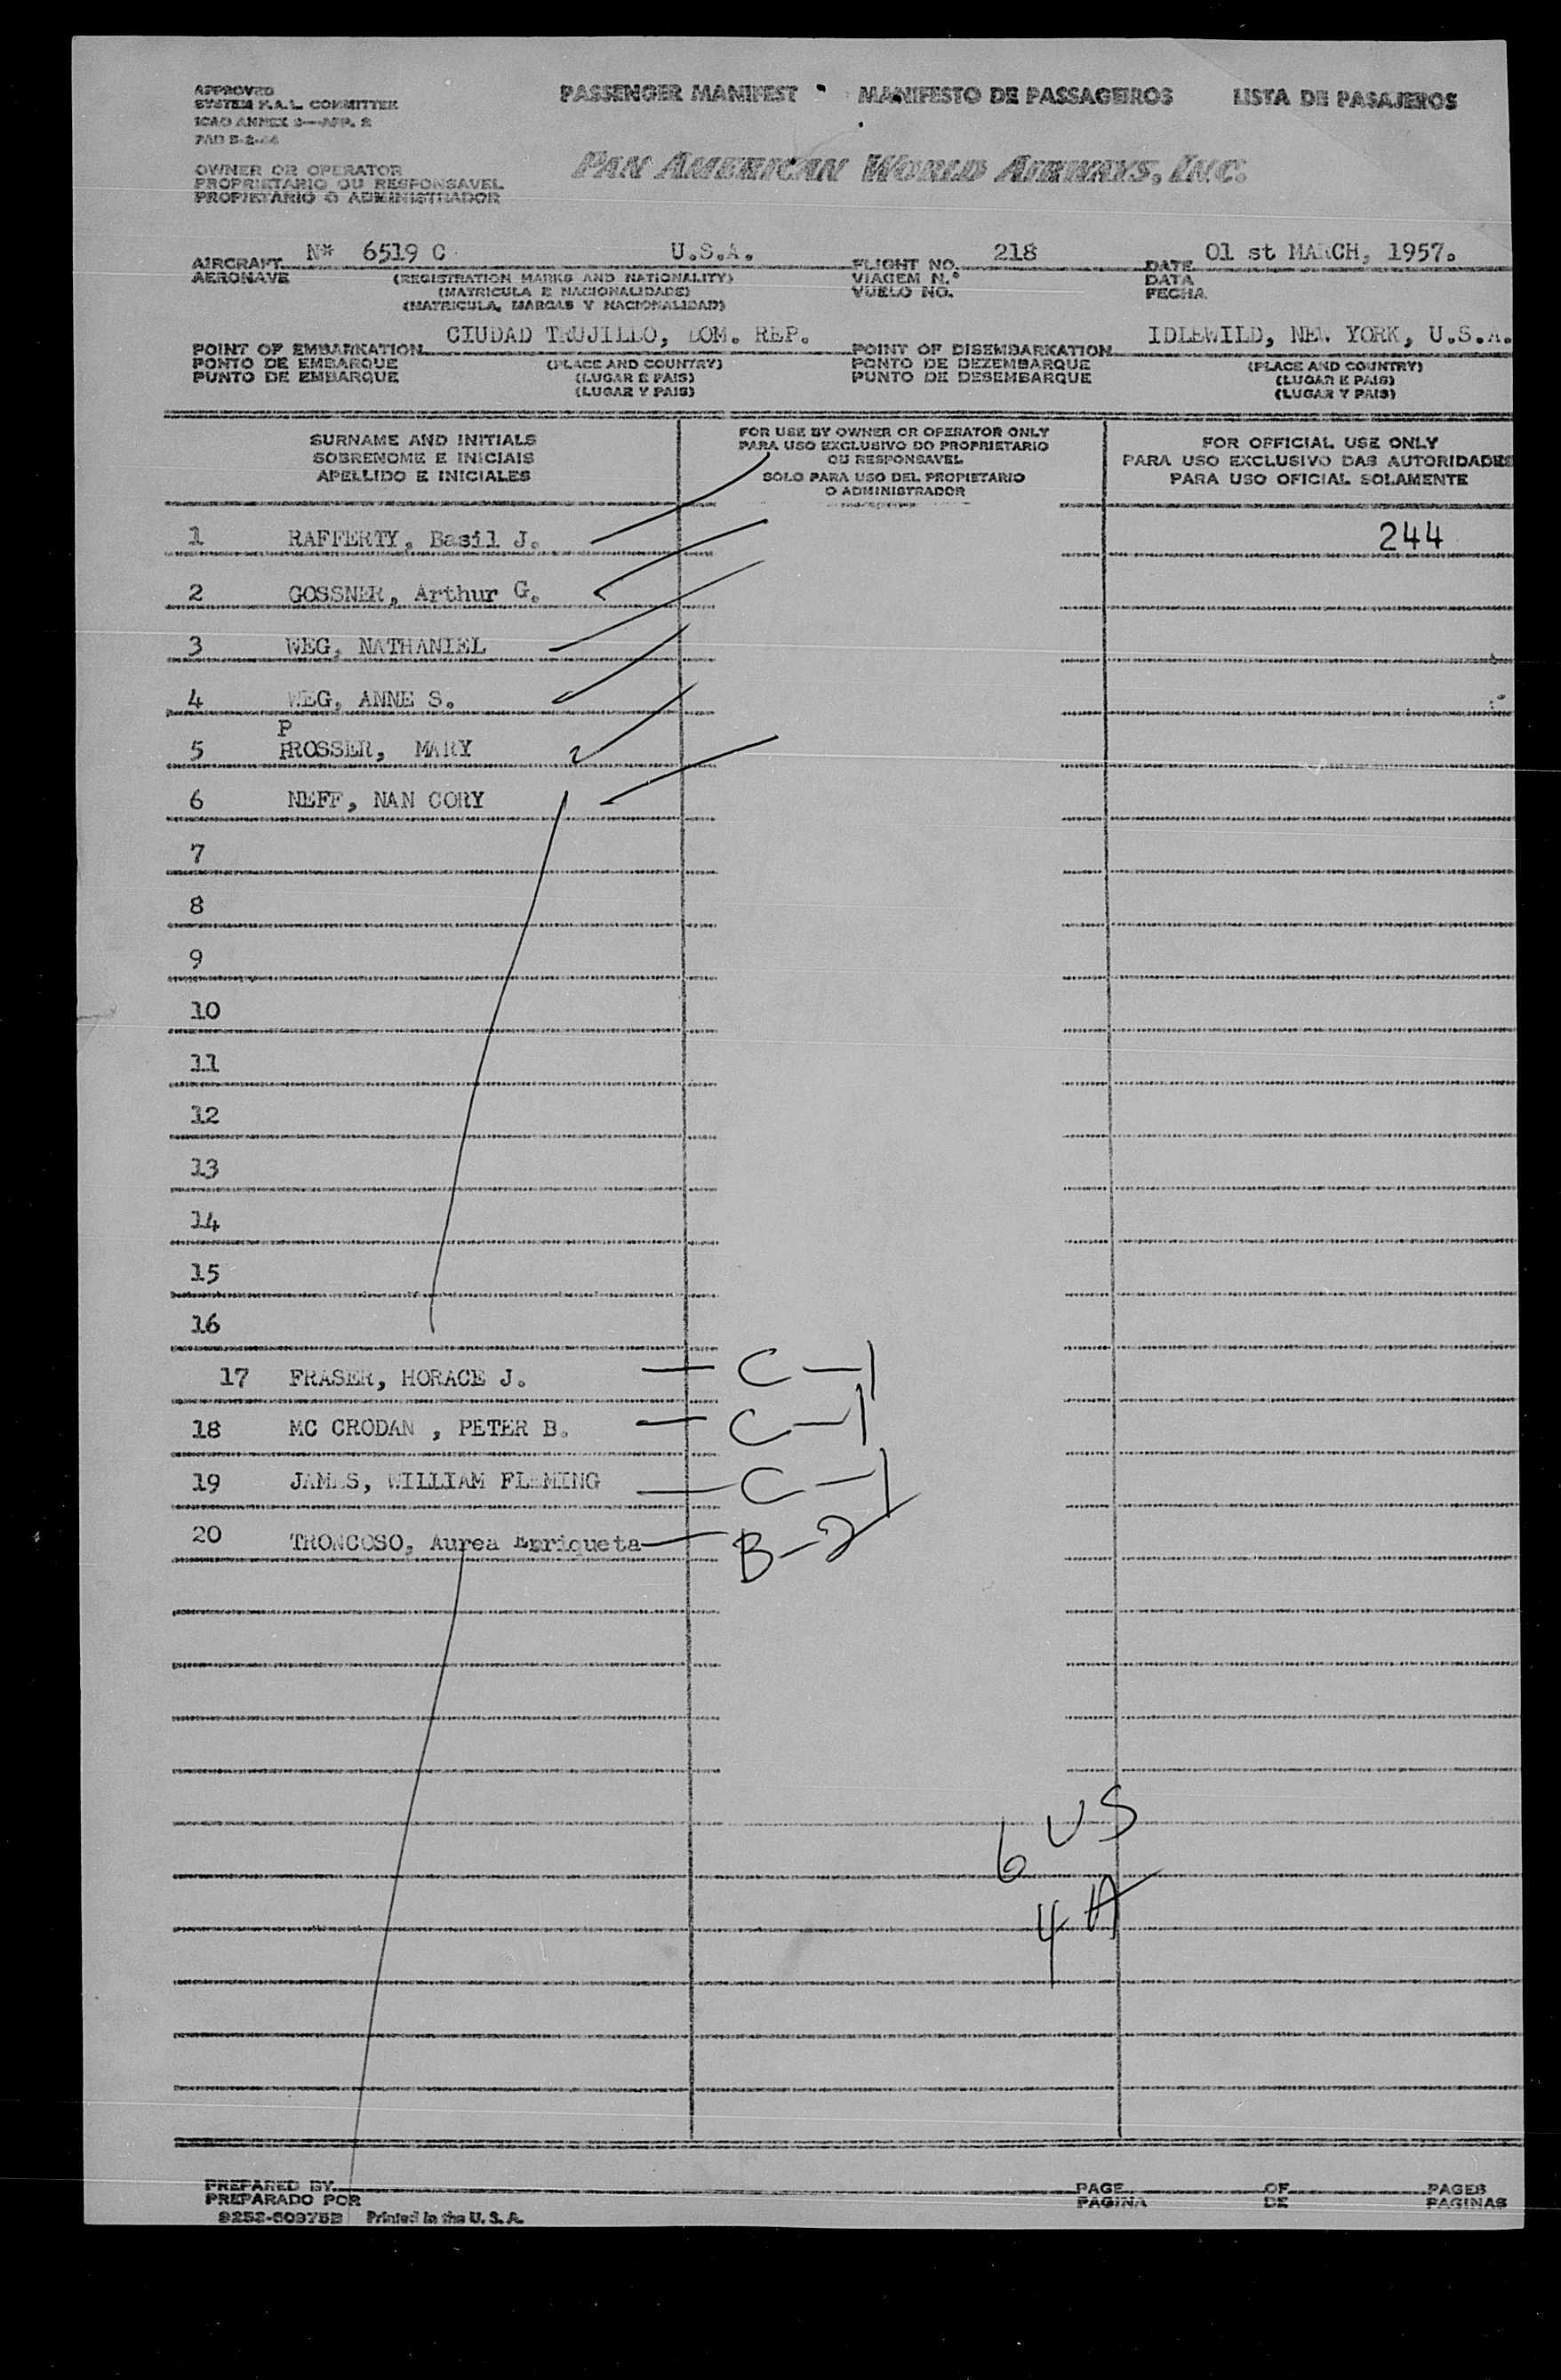 APPROVED
SYSTEM F.A.L. COMMITTEE
ICAO ANNEX 9—APP. 2
PASSENGER MANIFEST • MANIFESTO DE PASSAGEIROS LISTA DE PASAJEROS
OWNER OR OPERATOR
PROPRIETARIO OU RESPONSAVEL
PROPIETARIO O ADMINISTRADOR
PAN AMERICAN WORLD AIRWAYS, INC.
AIRCRAFT N* 6519 C U.S.A. FLIGHT NO. 218 DATE 01 st MARCH, 1957.
AERONAVE (REGISTRATION MARKS AND NATIONALITY) VIAGEM N.° DATA
(MATRICULA E NACIONALIDADE) VUELO NO. FECHA
(MATRICULA, MARCAS Y NACIONALIDAD)
POINT OF EMBARKATION CIUDAD TRUJILLO, DOM. REP. POINT OF DISEMBARKATION IDLEWILD, NEW YORK, U.S.A.
PONTO DE EMBARQUE (PLACE AND COUNTRY) PONTO DE DEZEMBARQUE (PLACE AND COUNTRY)
PUNTO DE EMBARQUE (LUGAR E PAIS) PUNTO DE DESEMBARQUE (LUGAR E PAIS)
(LUGAR Y PAIS) (LUGAR Y PAIS)
SURNAME AND INITIALS
SOBRENOME E INICIAIS
APELLIDO E INICIALES
FOR USE BY OWNER OR OPERATOR ONLY
PARA USO EXCLUSIVO DO PROPRIETARIO
OU RESPONSAVEL
SOLO PARA USO DEL PROPIETARIO
O ADMINISTRADOR
FOR OFFICIAL USE ONLY
PARA USO EXCLUSIVO DAS AUTORIDADES
PARA USO OFICIAL SOLAMENTE
1 RAFFERTY, Basil J. 244
2 GOSSNER, Arthur G.
3 WEG, NATHANIEL
4 WEG, ANNE S.
P
5 PROSSER, MARY
6 NEFF, NAN CORY
7
8
9
10
11
12
13
14
15
16
17 FRASER, HORACE J. — C—1
18 MC CRODAN , PETER B. — C—1
19 JAMES, WILLIAM FLEMING — C—1
20 TRONCOSO, Aurea Enriqueta — B—2
6 US
4 A
PREPARED BY PAGE OF PAGES
PREPARADO POR PAGINA DE PAGINAS
Printed in the U. S. A.